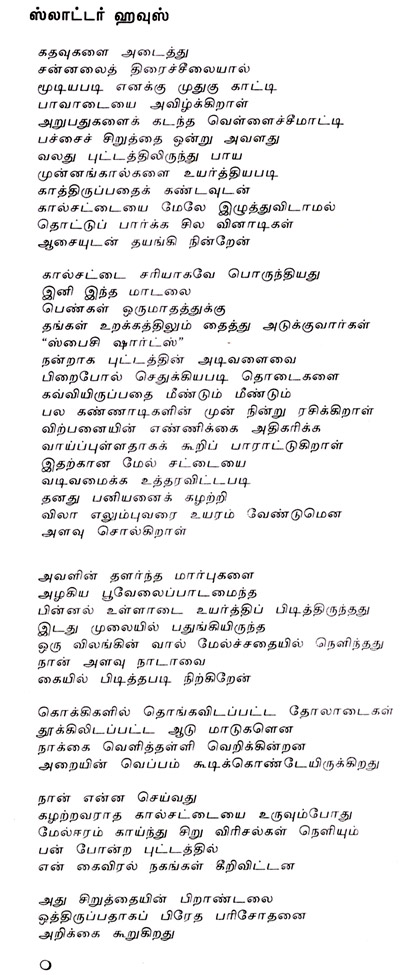 ஸ்லாட்டர் ஹவுஸ்
கதவுகளை அடைத்து
சன்னலைத் திரைச்சீலையால்
மூடியபடி எனக்கு முதுகு காட்டி
பாவாடையை அவிழ்க்கிறாள்
அறுபதுகளைக் கடந்த வெள்ளைச்சீமாட்டி
பச்சைச் சிறுத்தை ஒன்று அவளது
வலது புட்டத்திலிருந்து பாய
முன்னங்கால்களை உயர்த்தியபடி
காத்திருப்பதைக் கண்டவுடன்
கால்சட்டையை மேலே இழுத்துவிடாமல்
தொட்டுப் பார்க்க சில வினாடிகள்
ஆசையுடன் தயங்கி நின்றேன்
கால்சட்டை சரியாகவே பொருந்தியது
இனி இந்த மாடலை
பெண்கள் ஒருமாதத்துக்கு
தங்கள் உறக்கத்திலும் தைத்து அடுக்குவார்கள்
“ஸ்பைசி ஷார்ட்ஸ்”
நன்றாக புட்டத்தின் அடிவளைவை
பிறைபோல் செதுக்கியபடி தொடைகளை
கவ்வியிருப்பதை மீண்டும் மீண்டும்
பல கண்ணாடிகளின் முன் நின்று ரசிக்கிறாள்
விற்பனையின் எண்ணிக்கை அதிகரிக்க
வாய்ப்புள்ளதாகக் கூறிப் பாராட்டுகிறாள்
இதற்கான மேல் சட்டையை
வடிவமைக்க உத்தரவிட்டபடி
தனது பனியனைக் கழற்றி
விலா எலும்புவரை உயரம் வேண்டுமென
அளவு சொல்கிறாள்
அவளின் தளர்ந்த மார்புகளை
அழகிய பூவேலைப்பாடமைந்த
பின்னல் உள்ளாடை உயர்த்திப் பிடித்திருந்தது
இடது முலையில் பதுங்கியிருந்த
ஒரு விலங்கின் வால் மேல்ச்சதையில் நெளிந்தது
நான் அளவு நாடாவை
கையில் பிடித்தபடி நிற்கிறேன்
கொக்கிகளில் தொங்கவிடப்பட்ட தோலாடைகள்
தூக்கிலிடப்பட்ட ஆடு மாடுகளென
நாக்கை வெளித்தள்ளி வெறிக்கின்றன
அறையின் வெப்பம் கூடிக்கொண்டேயிருக்கிறது
நான் என்ன செய்வது
கழற்றவராத கால்சட்டையை உருவும்போது
மேல்ஈரம் காய்ந்து சிறு விரிசல்கள் நெளியும்
பன் போன்ற புட்டத்தில்
என் கைவிரல் நகங்கள் கீறிவிட்டன
அது சிறுத்தையின் பிறாண்டலை
ஒத்திருப்பதாகப் பிரேத பரிசோதனை
அறிக்கை கூறுகிறது